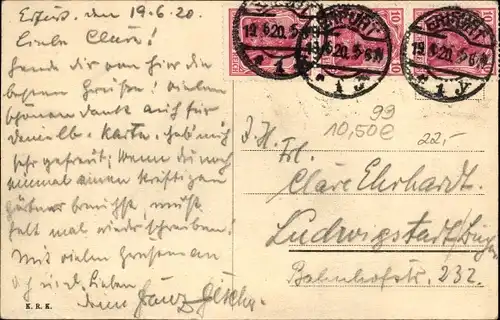 Erfurt, den 19.6.20.
Liebe Cläre!
Sende dir von hier die
besten Grüßen! vielen
schönen Dank auch für
deine Karte, hab mich
sehr gefreut; Wenn du noch
einmal einen kräftigen
Gärtner brauchst, mußt
halt mal wieder schreiben!
Mit vielen Grüßen an
d. Lieben
dein Franz
K. R. K.
10 10
ERFURT ERFURT
19.6.20. 5-6N 19.6.20. 5-6N 19.6.20. 5-6N
* 1 * 1 * 1 y
99
10,50€
22,-
Frl.
Cläre Ehrhardt.
Ludwigstadt
Bahnhofstr. 232.